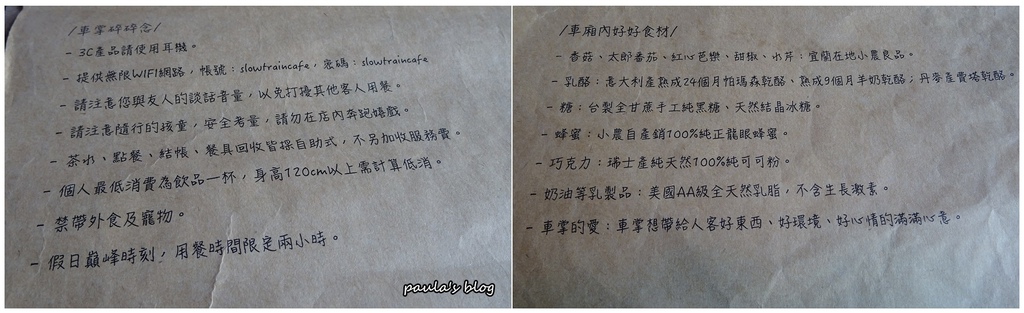 /車掌碎碎念/
- 3C產品請使用耳機。
- 提供無限WIFI網路，帳號：slowtraincafe，密碼：slowtraincafe
- 請注意您與友人的談話音量，以免打擾其他客人用餐。
- 請注意隨行的孩童，安全考量，請勿在店內奔跑嬉戲。
- 茶水、點餐、結帳、餐具回收皆採自助式，不另加收服務費。
- 個人最低消費為飲品一杯，身高120cm以上需計算低消。
- 禁帶外食及寵物。
- 假日巔峰時刻，用餐時間限定兩小時。
paula's blog
/車廂內好好食材/
- 香菇、太郎番茄、紅心芭樂、甜椒、水芹：宜蘭在地小農良品。
- 乳酪：意大利產熟成24個月帕瑪森乾酪、熟成9個月羊奶乾酪；丹麥產費塔乾酪。
- 糖：台製全甘蔗手工純黑糖、天然結晶冰糖。
- 蜂蜜：小農自產銷100%純正龍眼蜂蜜。
- 巧克力：瑞士產純天然100%純可可粉。
- 奶油等乳製品：美國AA級全天然乳脂，不含生長激素。
- 車掌的愛：車掌想帶給人客好東西、好環境、好心情的滿滿心意。